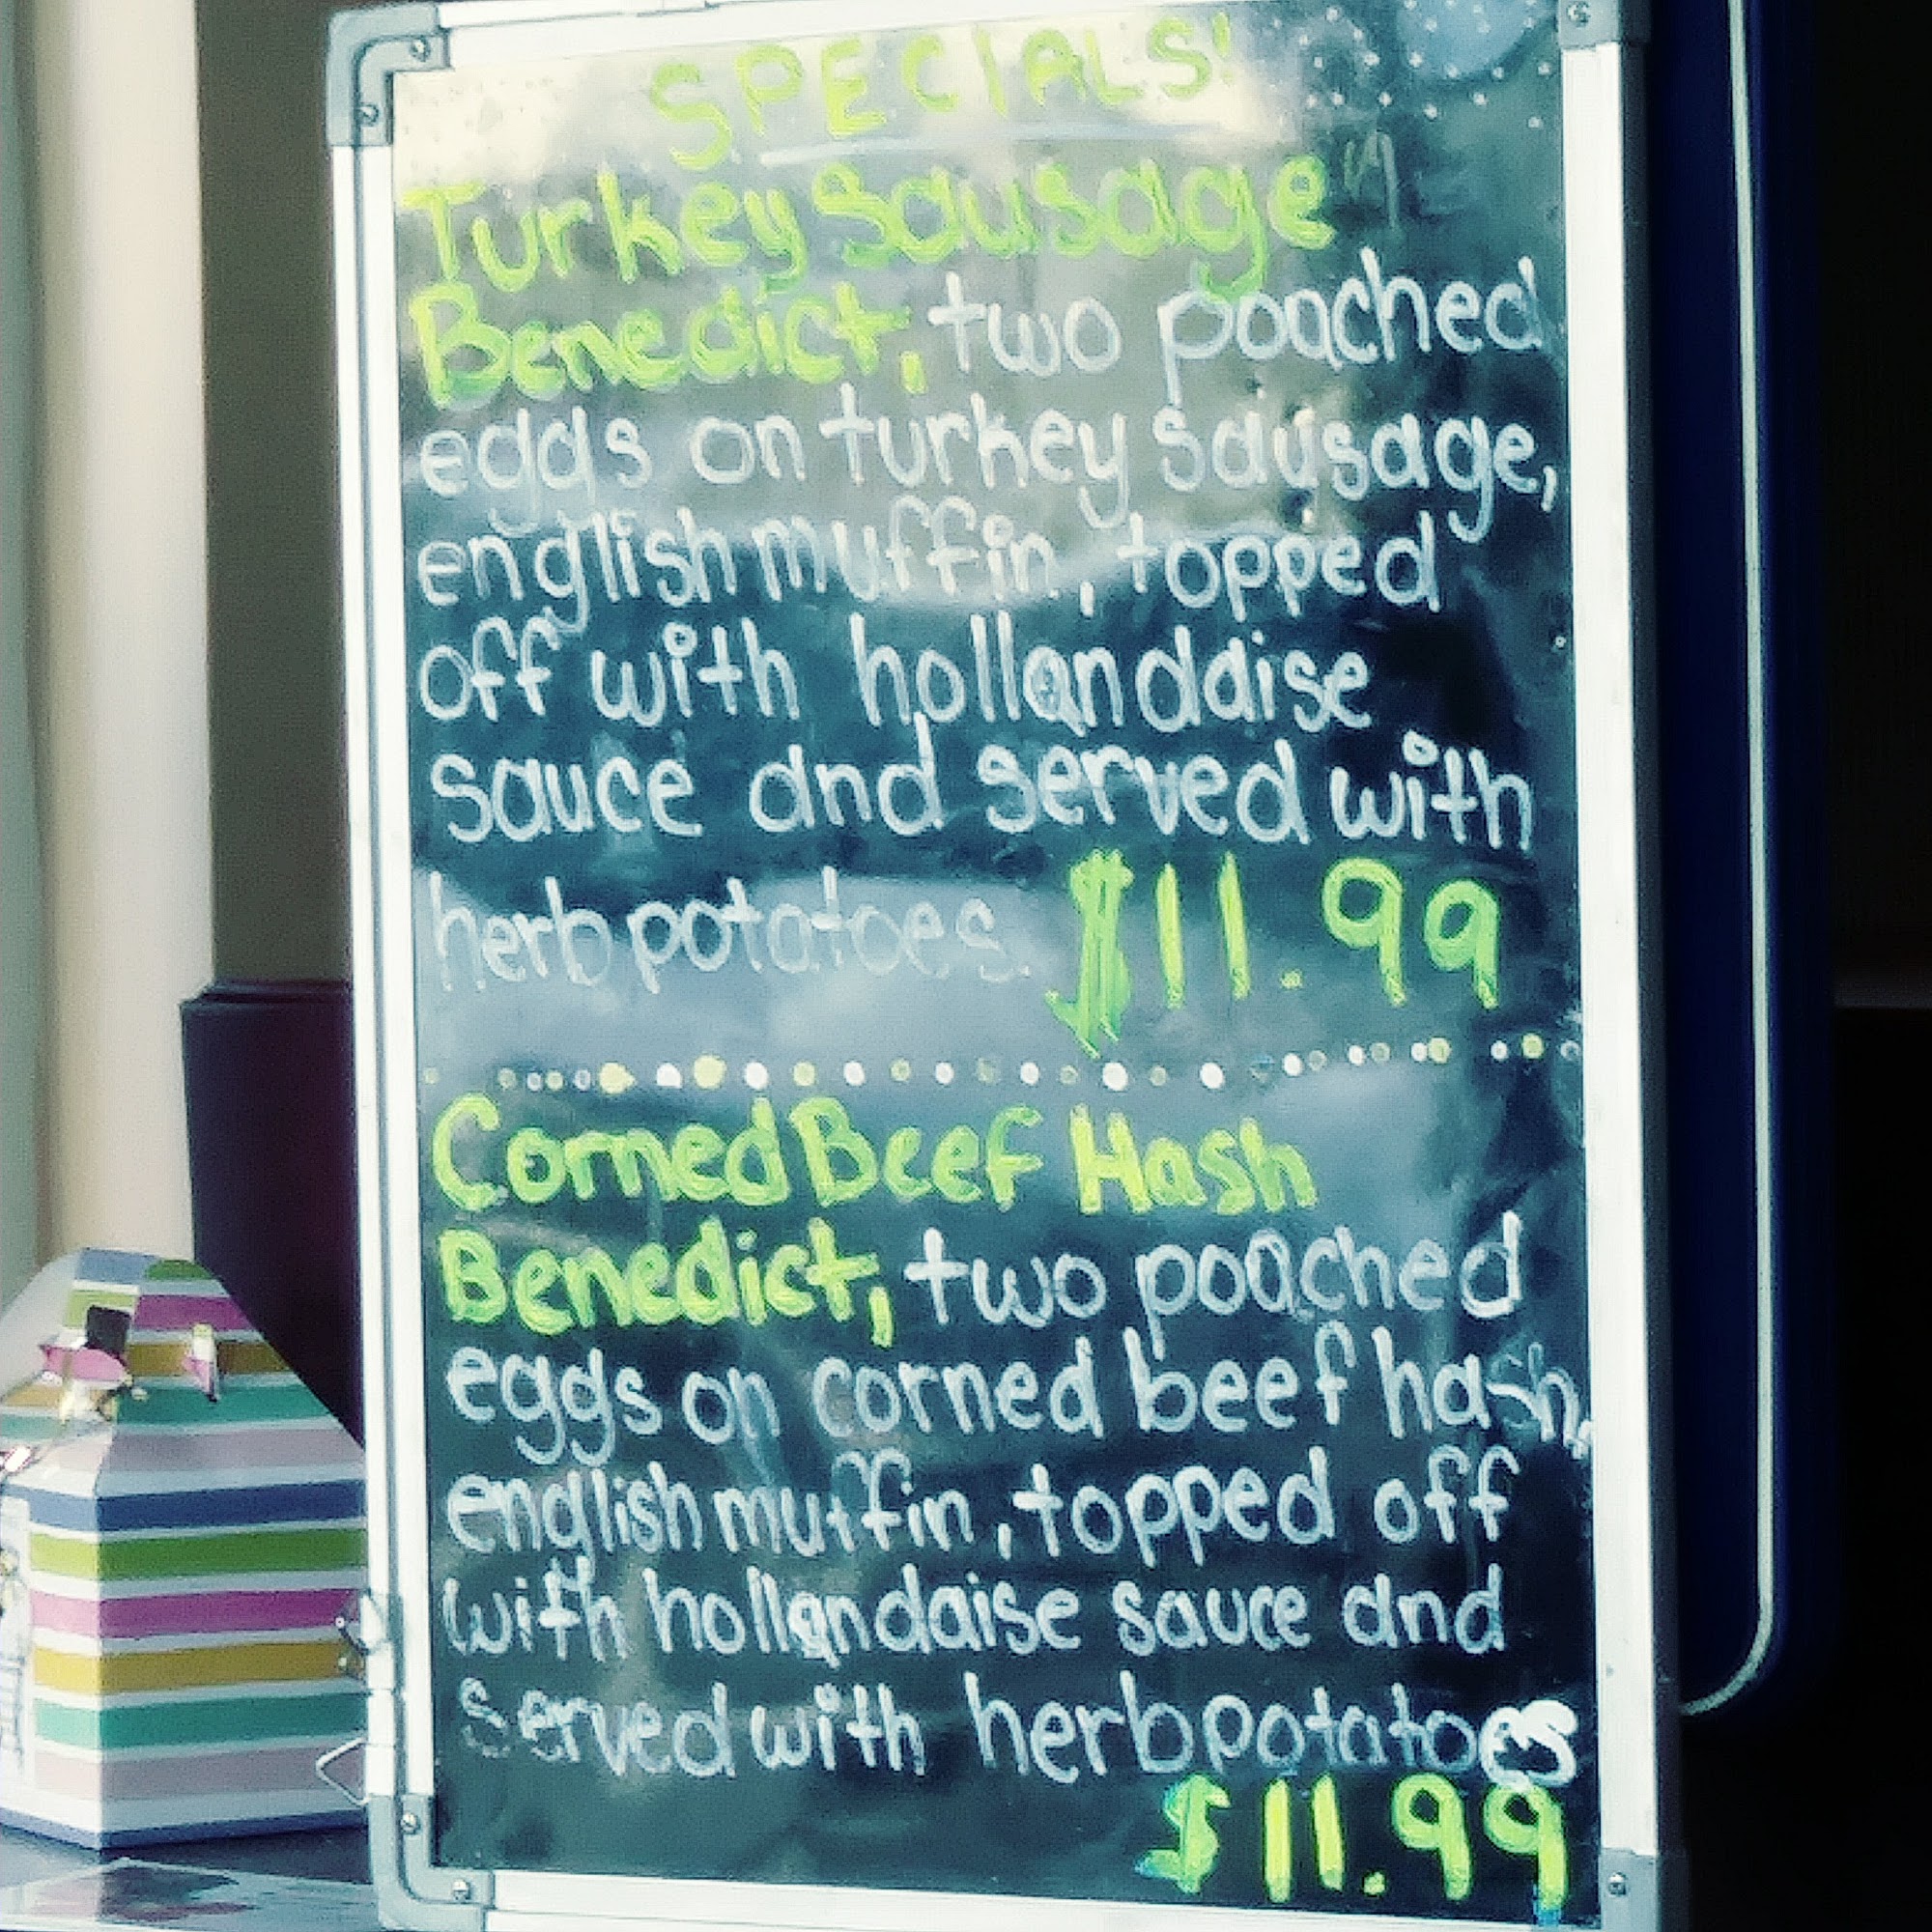 SPECIALS!
Turkey Sausage
Benedict, two poached
eggs on turkey sausage,
english muffin, topped
off with hollanddise
sauce and served with
herb potatoes. $11.99
Corned Beef Hash
Benedict, two poached
eggs on corned beef hash,
english muffin, topped off
with hollandaise sauce and
served with herb potatoes
$11.99